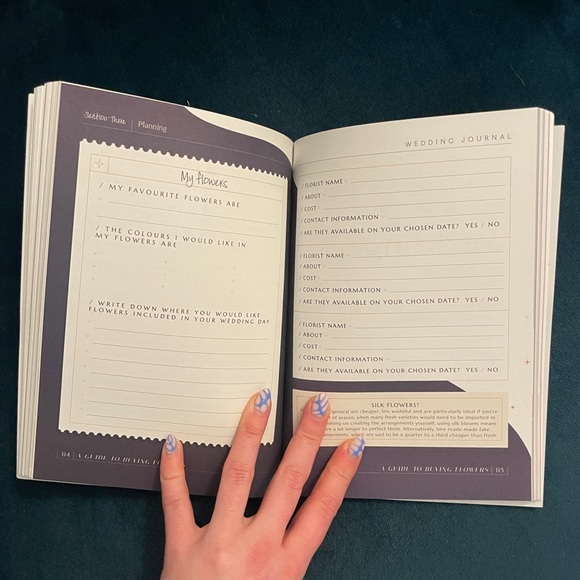 Section Three | Planning
My flowers
/ MY FAVOURITE FLOWERS ARE
/ THE COLOURS I WOULD LIKE IN
MY FLOWERS ARE
/ WRITE DOWN WHERE YOU WOULD LIKE
FLOWERS INCLUDED IN YOUR WEDDING DAY
114 | A GUIDE TO BUYING
WEDDING JOURNAL
/ FLORIST NAME
/ ABOUT
/ COST
/ CONTACT INFORMATION
/ ARE THEY AVAILABLE ON YOUR CHOSEN DATE? YES / NO
/ FLORIST NAME
/ ABOUT
/ COST
/ CONTACT INFORMATION
/ ARE THEY AVAILABLE ON YOUR CHOSEN DATE? YES / NO
/ FLORIST NAME
/ ABOUT
/ COST
/ CONTACT INFORMATION
/ ARE THEY AVAILABLE ON YOUR CHOSEN DATE? YES / NO
SILK FLOWERS?
general are cheaper, less wasteful and are particularly ideal if you're
of season, when many fresh varieties would need to be imported in
on creating the arrangements yourself, using silk blooms means
a lot longer to perfect them. Alternatively, hire ready-made fake
which are said to be a quarter to a third cheaper than fresh.
A GUIDE TO BUYING FLOWERS | 115